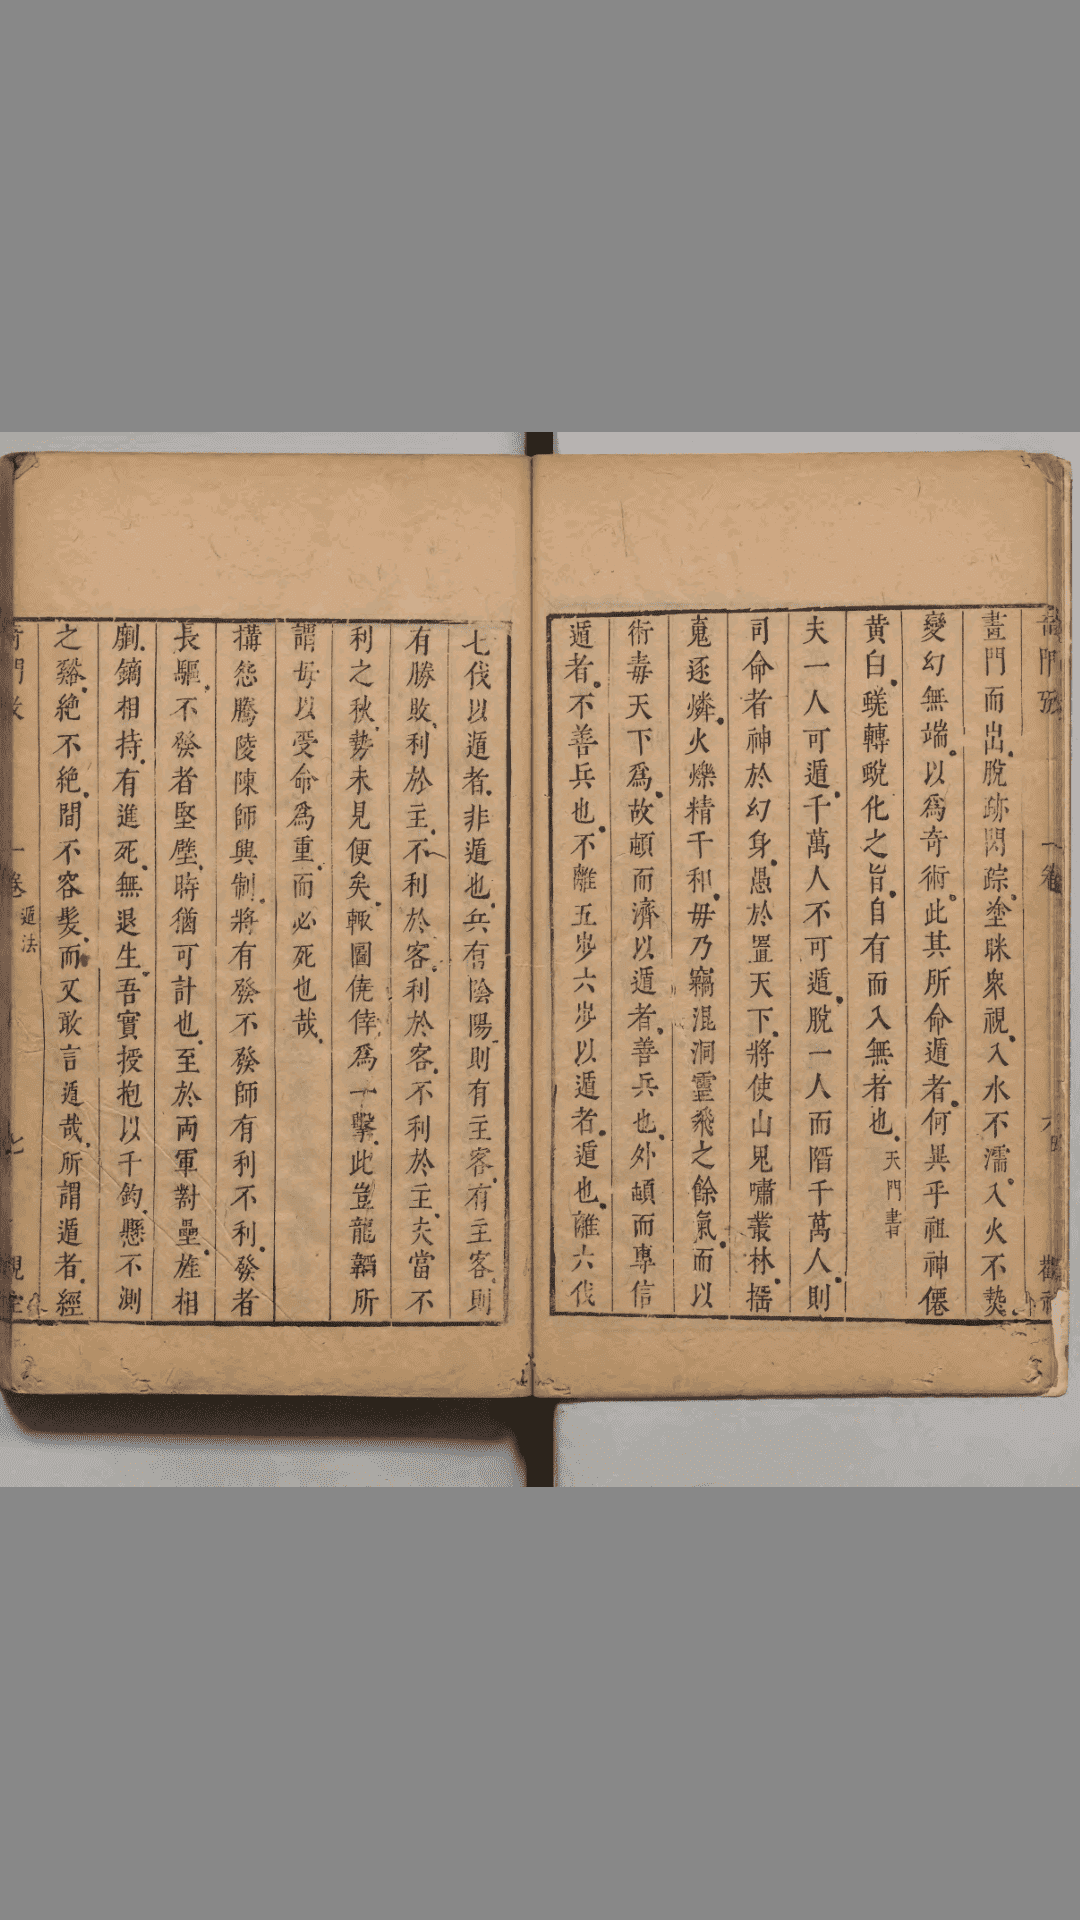 畫門而出脫跡閃踪塗眯衆視入水不濡入火不爇
變幻無端以爲奇術此其所命遁者何異乎祖神僊
黄白蛻轉蛻化之旨自有而入無者也天門書
夫一人可遁千萬人不可遁脫一人而陷千萬人則
司命者神於幻身愚於置天下將使山鬼嘯叢林搖
嵬逐燐火爍精千和毋乃竊混洞靈飛之餘氣而以
術毒天下爲故頔而濟以遁者善兵也外頔而專信
遁者不善兵也不離五步六步以遁者遁也離六伐
七伐以遁者非遁也兵有陰陽則有主客有主客則
有勝敗利於主不利於客利於客不利於主夫當不
利之秋勢未見便矣輙圖僥倖爲一擊此豈龍韜所
謂毋以受命爲重而必死也哉
搆怨騰陵陳師興制將有發不發師有利不利發者
長驅不發者堅壁時猶可計也至於兩軍對壘旌相
劘鏑相持有進死無退生吾實授抱以千鈞懸不測
之谿絶不絶間不容髮而又敢言遁哉所謂遁者經
一卷
遁法
七